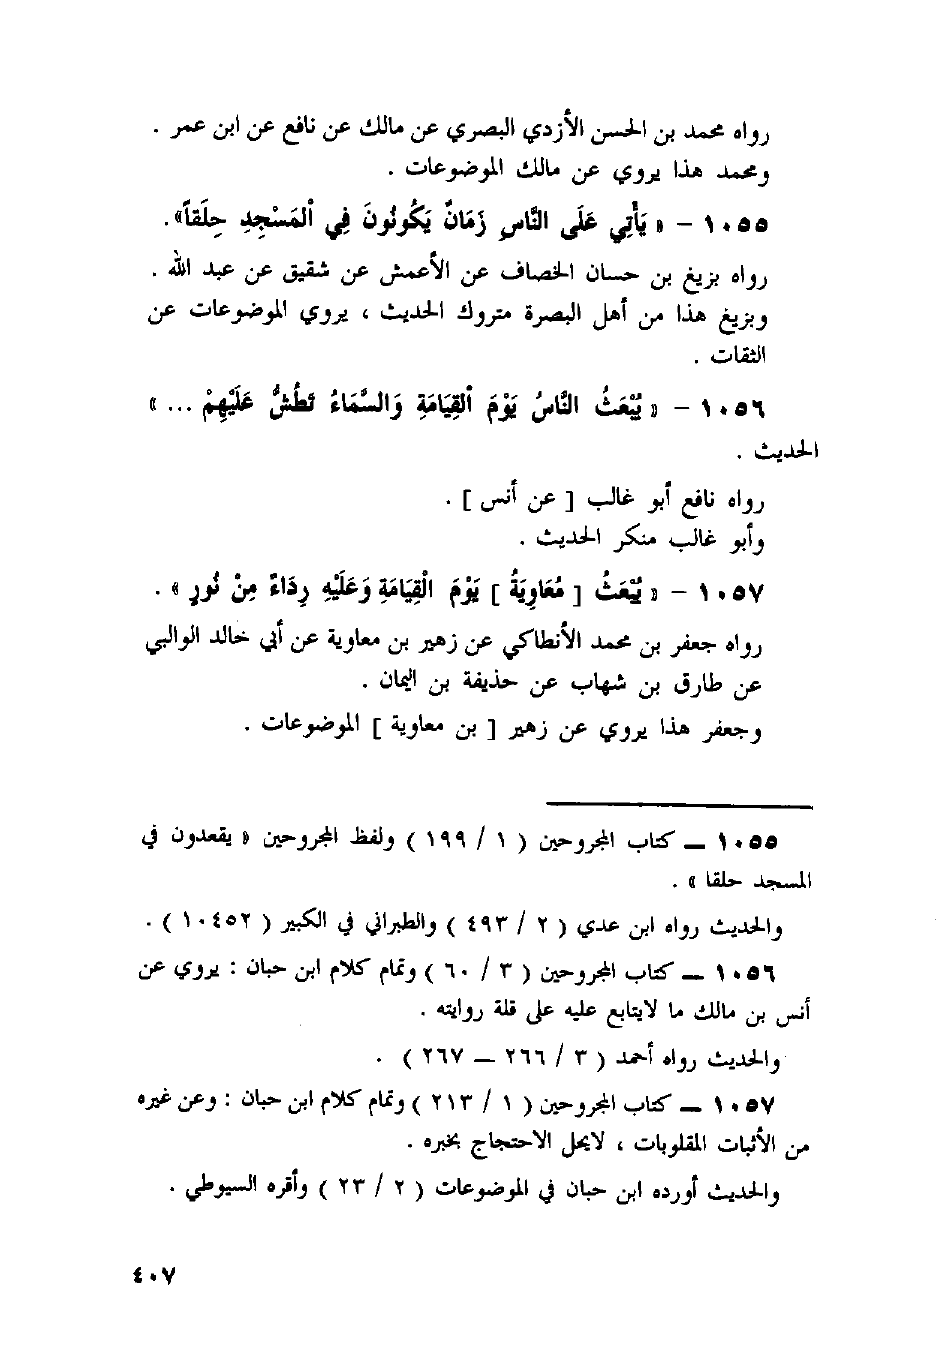 رواه محمد بن الحسن الأزدي البصري عن مالك عن نافع عن ابن عمر .
ومحمد هذا يروي عن مالك الموضوعات .
١٠٥٥ – « يَأْتِي عَلَى النَّاسِ زَمَانٌ يَكُونُونَ فِي ٱلْمَسْجِدِ حِلَقاً».
رواه بزيغ بن حسان الخصاف عن الأعمش عن شقيق عن عبد الله .
وبزيغ هذا من أهل البصرة متروك الحديث ، يروي الموضوعات عن
الثقات .
١٠٥٦ – « يُبْعَثُ النَّاسُ يَوْمَ ٱلْقِيَامَةِ وَالسَّمَاءُ تَطُشُّ عَلَيْهِمْ ... »
الحديث .
رواه نافع أبو غالب [ عن أنس ] .
وأبو غالب منكر الحديث .
١٠٥٧ – « يُبْعَثُ [ مُعَاوِيَةُ ] يَوْمَ الْقِيَامَةِ وَعَلَيْهِ رِدَاءٌ مِنْ نُورٍ » .
رواه جعفر بن محمد الأنطاكي عن زهير بن معاوية عن أبي خالد الوالبي
عن طارق بن شهاب عن حذيفة بن اليمان .
وجعفر هذا يروي عن زهير [ بن معاوية ] الموضوعات .
١٠٥٥ – كتاب المجروحين ( ١ / ١٩٩ ) ولفظ المجروحين « يقعدون في
المسجد حلقا » .
والحديث رواه ابن عدي ( ٢ / ٤٩٣ ) والطبراني في الكبير ( ١٠٤٥٢ ) .
١٠٥٦ – كتاب المجروحين ( ٣ / ٦٠ ) وتمام كلام ابن حبان : يروي عن
أنس بن مالك ما لايتابع عليه على قلة روايته .
والحديث رواه أحمد ( ٣ / ٢٦٦ – ٢٦٧ ) .
١٠٥٧ – كتاب المجروحين ( ١ / ٢١٣ ) وتمام كلام ابن حبان : وعن غيره
من الأثبات المقلوبات ، لايحل الاحتجاج بخبره .
والحديث أورده ابن حبان في الموضوعات ( ٢ / ٢٣ ) وأقره السيوطي .
٤٠٧